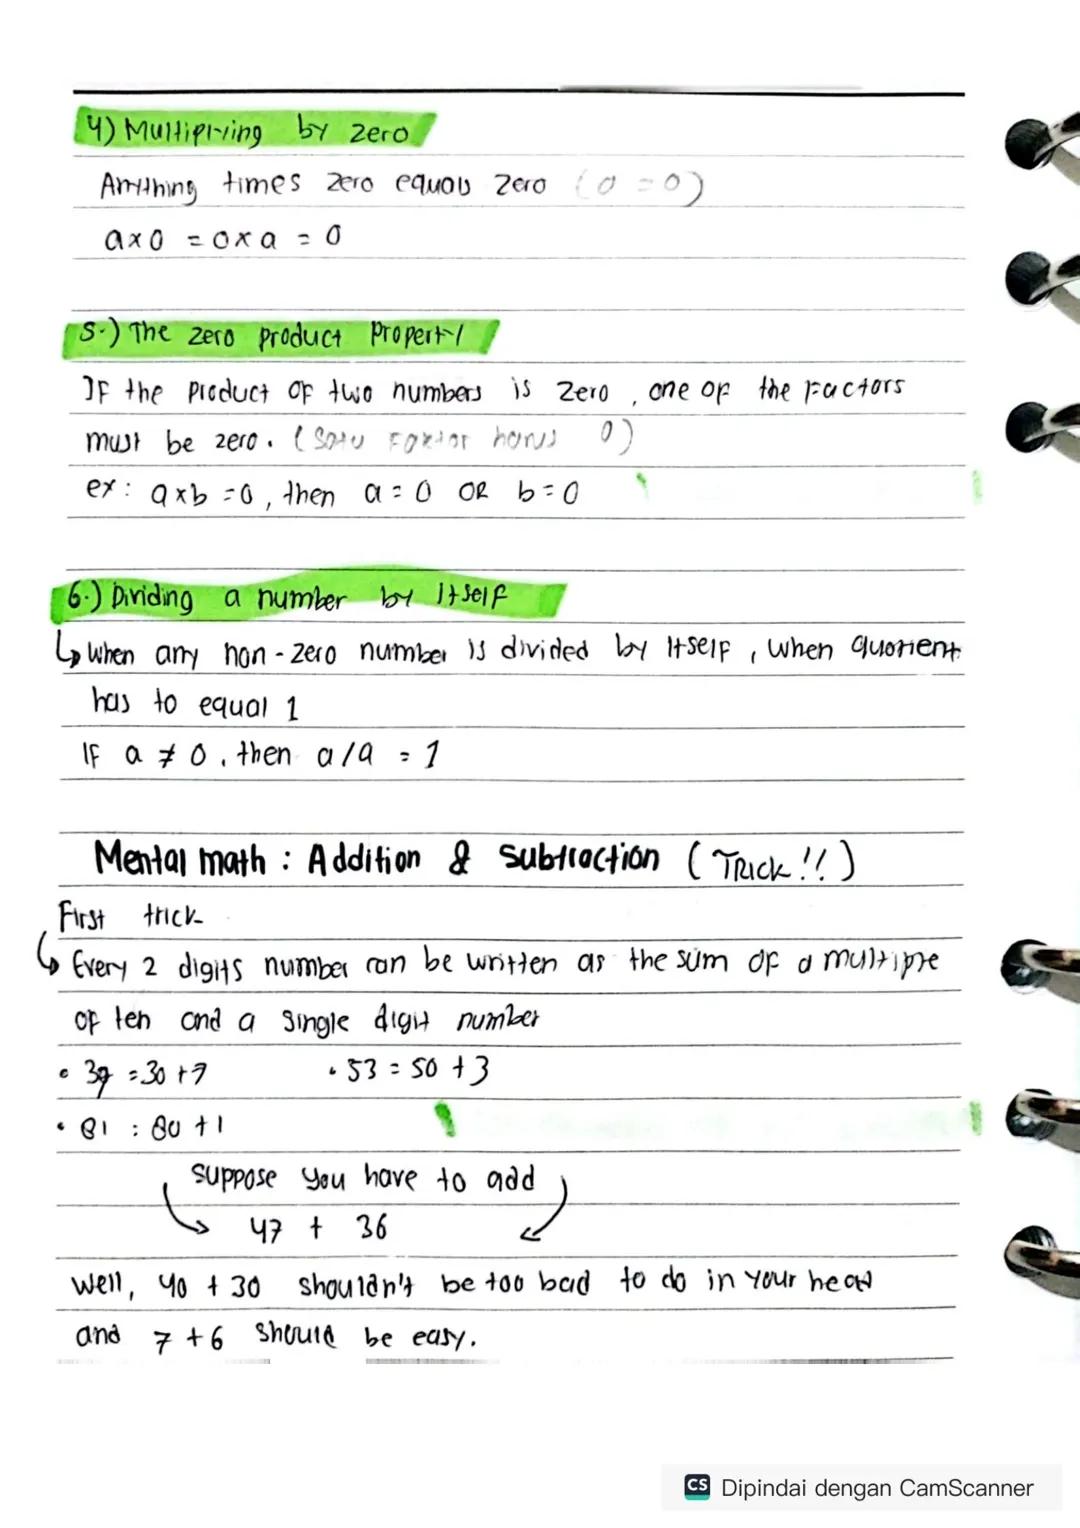 4) Multiplying by zero
Anything times zero equals zero (0 = 0)
a x 0 = 0 x a = 0
5.) The zero product property
If the product of two numbers is zero, one of the factors
must be zero. (Satu Faktor harus 0)
ex: a x b = 0, then a = 0 OR b = 0
6.) Dividing a number by itself
↳ When any non-zero number is divided by itself, when quotient
has to equal 1
IF a ≠ 0, then a/a = 1
Mental math : Addition & Subtraction (TRICK!!)
First trick
↳ Every 2 digits number can be written as the sum of a multiple
of ten and a single digit number
• 37 = 30 + 7 • 53 = 50 + 3
• 81 : 80 + 1
suppose you have to add
47 + 36
well, 40 + 30 shouldn't be too bad to do in your head
and 7 + 6 should be easy.
CS Dipindai dengan CamScanner